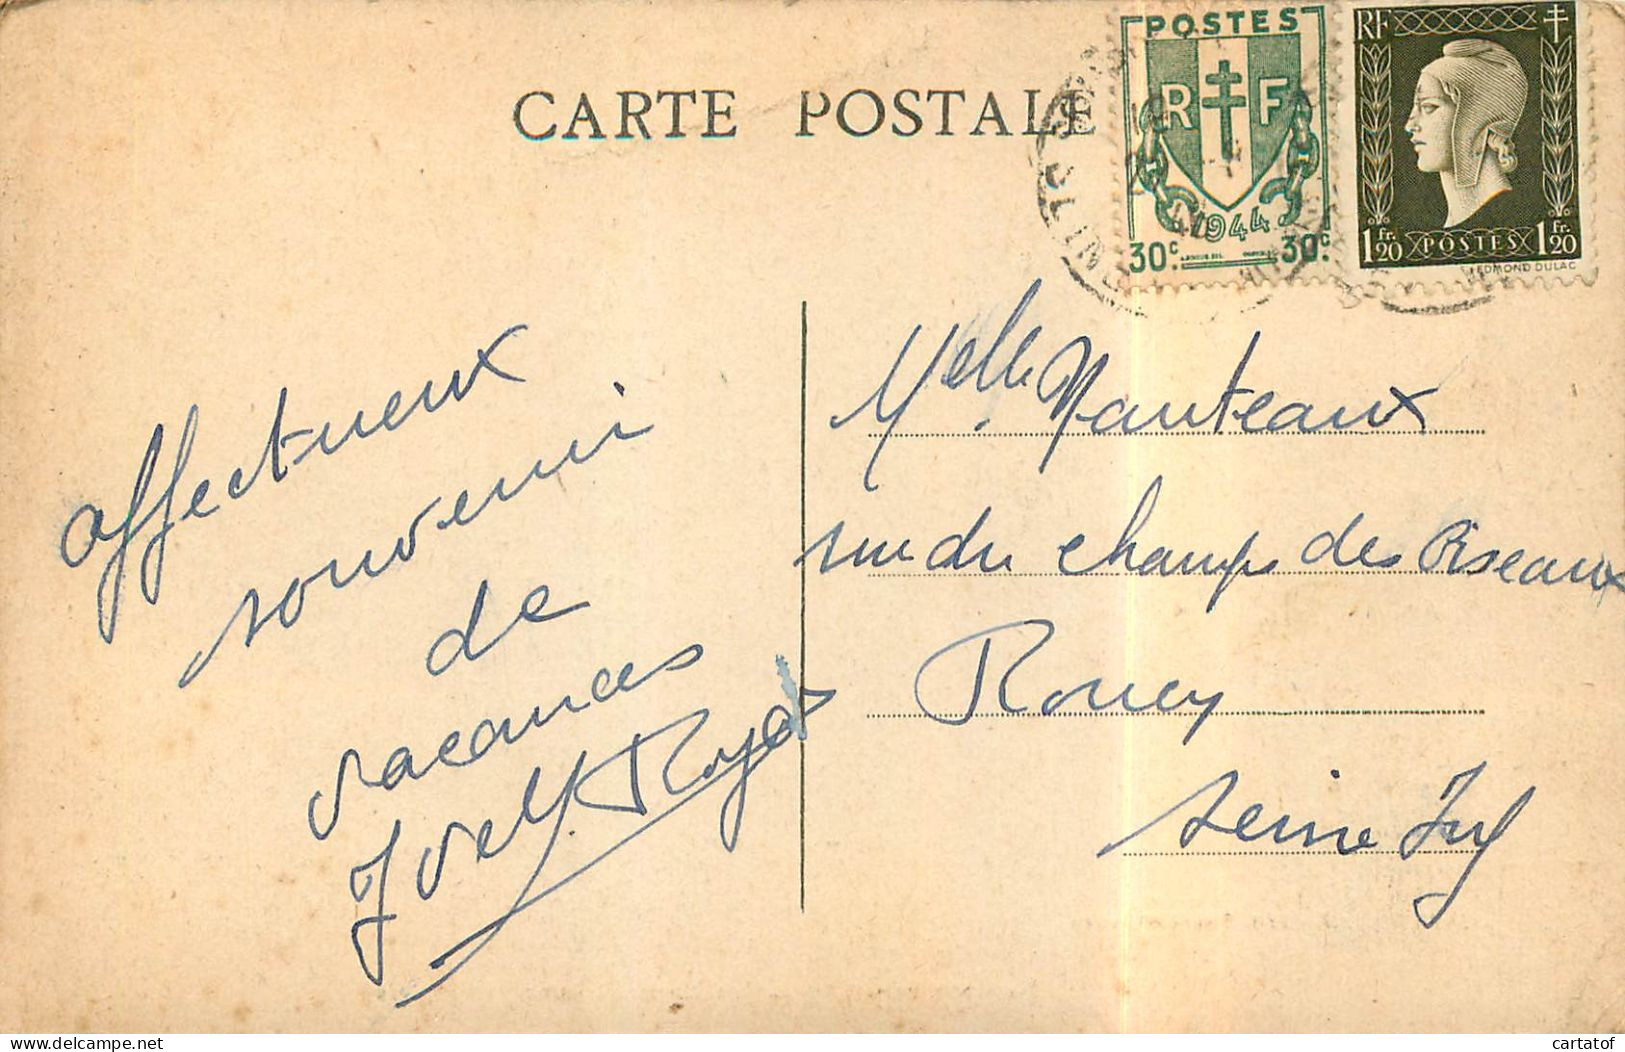 CARTE POSTALE
POSTES
RF
1944
30c 30c.
RF
1Fr.20 POSTES 1Fr.20
EDMOND DULAC
affectueux
souvenir
de
vacances
Melle Manteaux
rue du champs des Oiseaux
Rouen
Seine Inf
delcampe.net
cartatof